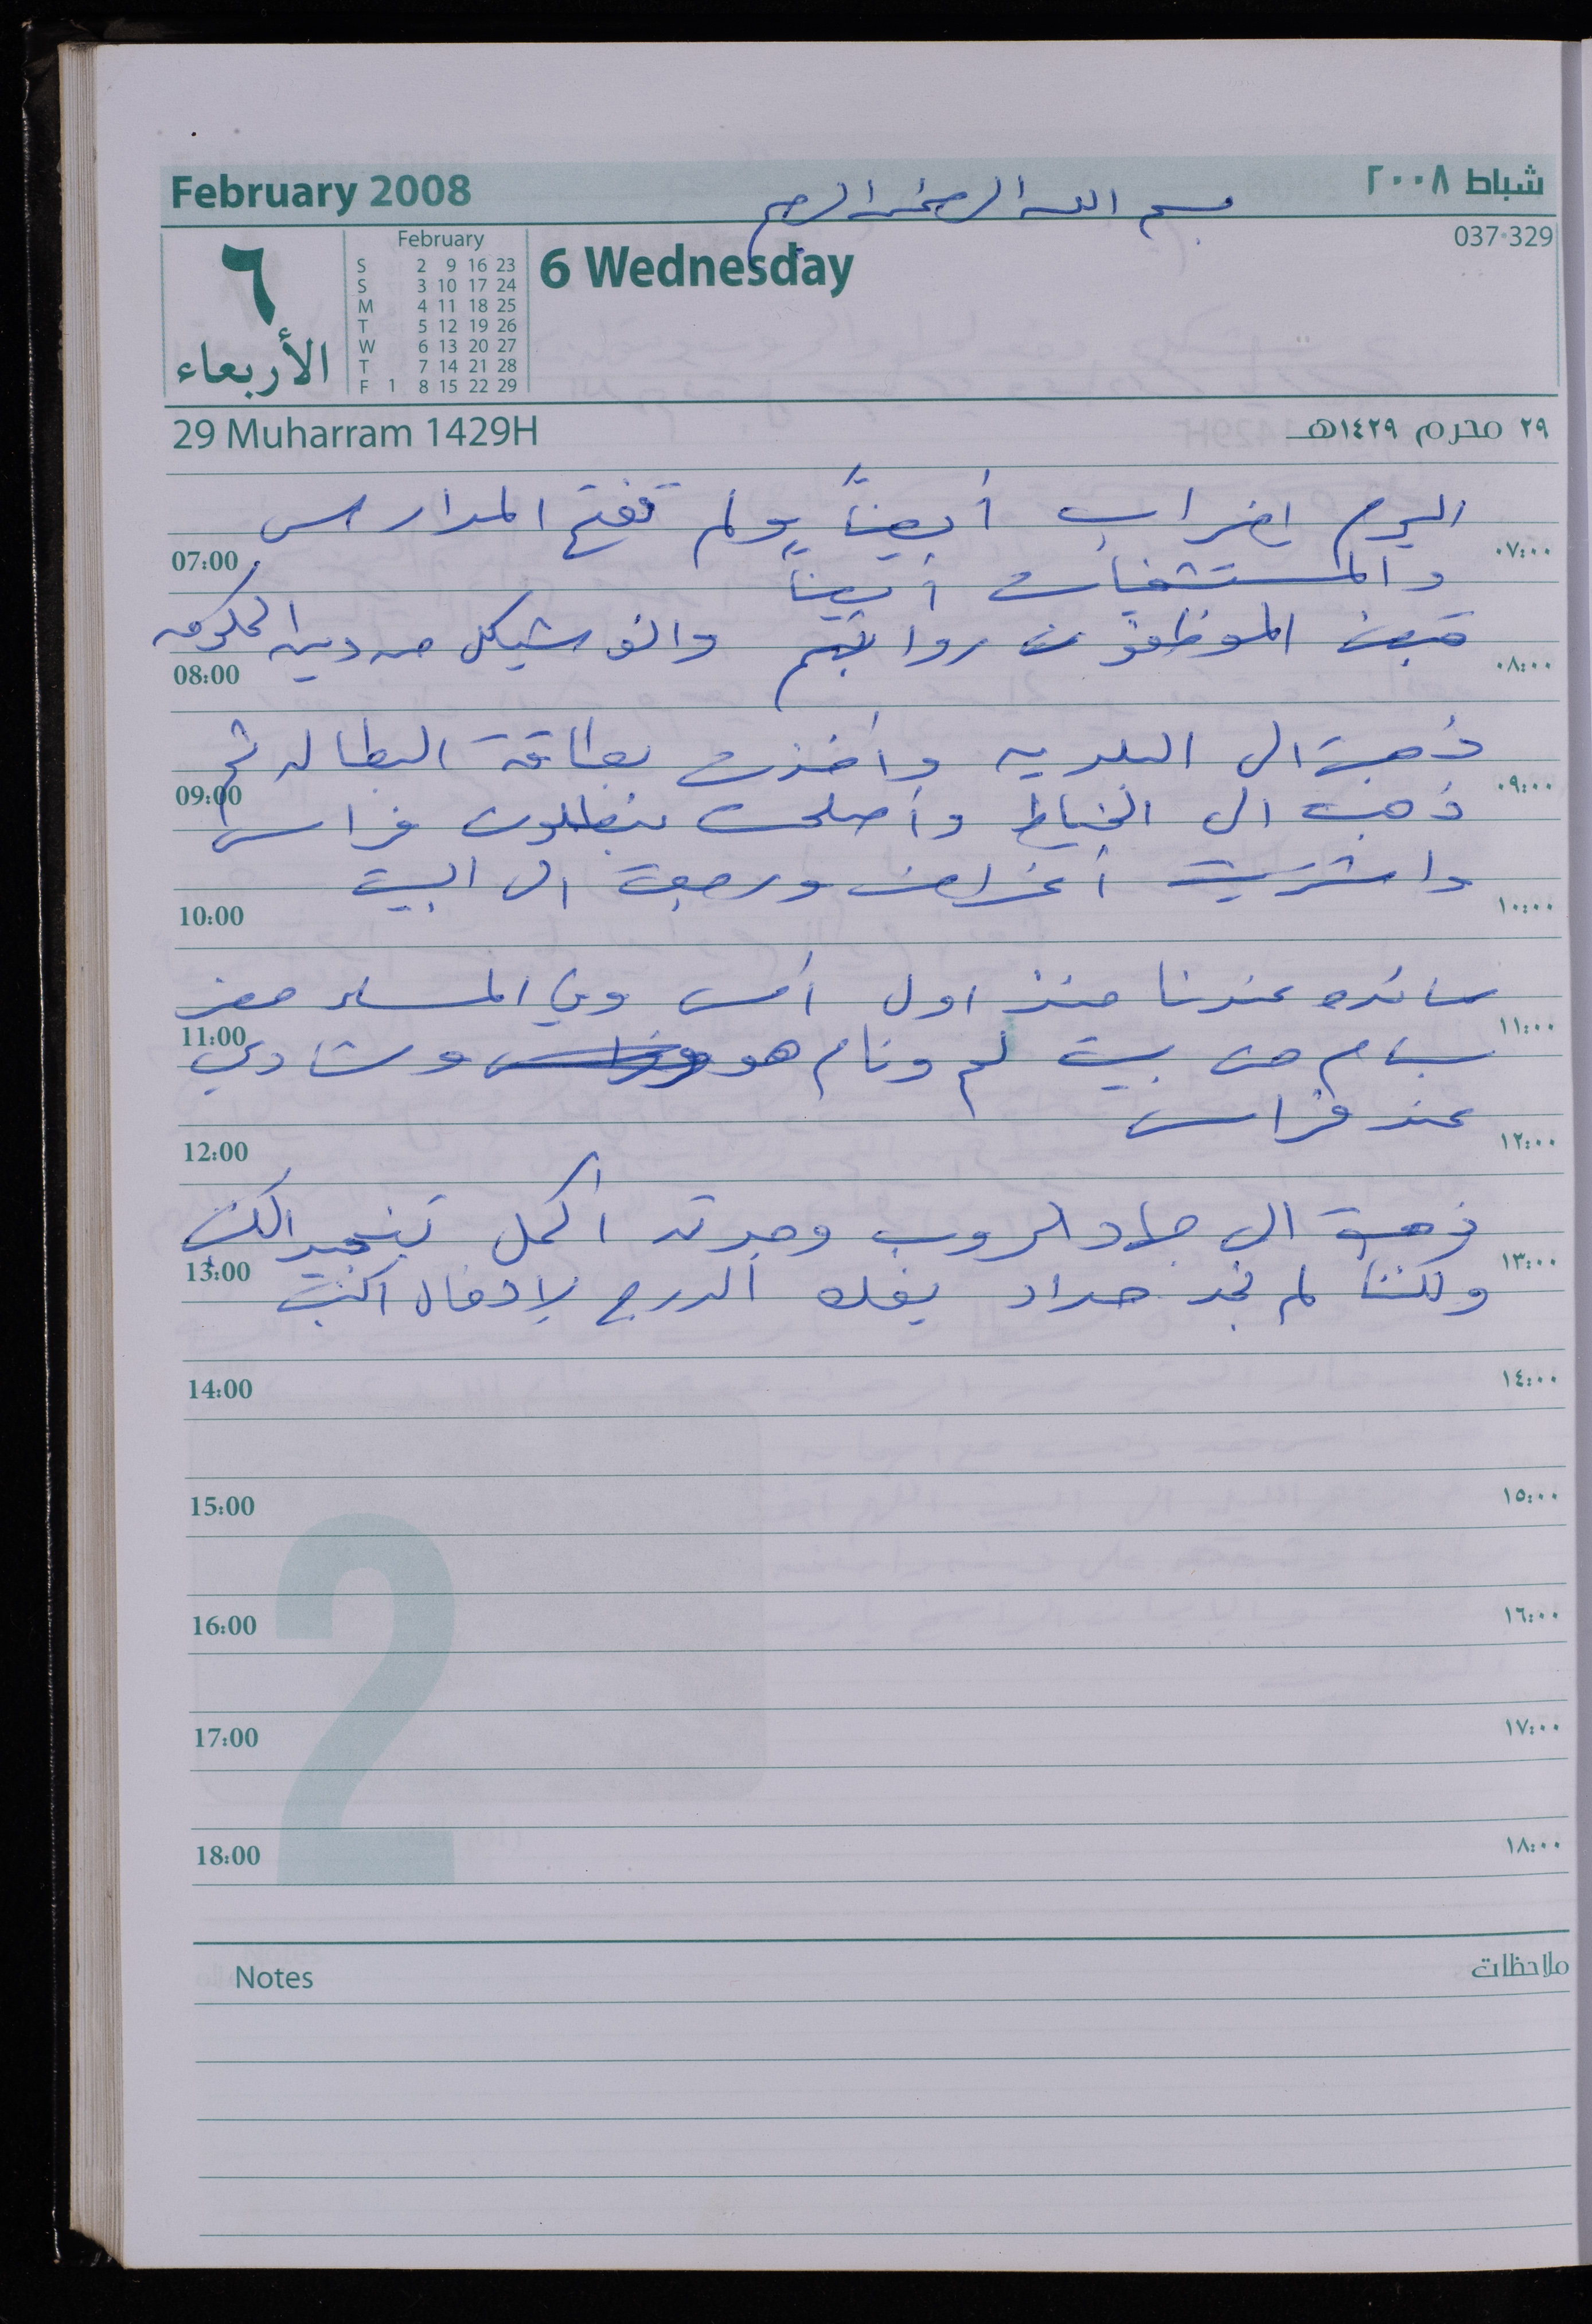 February 2008
شباط ٢٠٠٨
بسم الله الرحمن الرحيم
037-329
٦
الأربعاء
February
S 2 9 16 23
S 3 10 17 24
M 4 11 18 25
T 5 12 19 26
W 6 13 20 27
T 7 14 21 28
F 1 8 15 22 29
6 Wednesday
29 Muharram 1429H
٢٩ محرم ١٤٢٩هـ
اليوم اضراب أيضاً ولم تفتح المدارس
07:00 ٠٧:٠٠
والمستشفيات أيضاً
قبض الموظفون رواتبهم والف شيكل من دين الحكومه
08:00 ٠٨:٠٠
ذهبت الى البلديه وأخذت بطاقة البطاله ثم
09:00 ٠٩:٠٠
ذهبت الى الخياط وأصلحت بنطلون فراس
واشتريت أغراض ورجعت الى البيت
10:00 ١٠:٠٠
سائده عندنا منذ اول أمس وفي المساء حضر
11:00 ١١:٠٠
بسام من بيت لحم ونام هو وشادي
عند فراس
12:00 ١٢:٠٠
ذهبت الى جلاد الروب وجدته أكمل تنجيد الكنب
13:00 ١٣:٠٠
ولكننا لم نجد حداد يفك الدرج لإدخال الكنب
14:00 ١٤:٠٠
15:00 ١٥:٠٠
16:00 ١٦:٠٠
17:00 ١٧:٠٠
18:00 ١٨:٠٠
2
Notes
ملاحظات